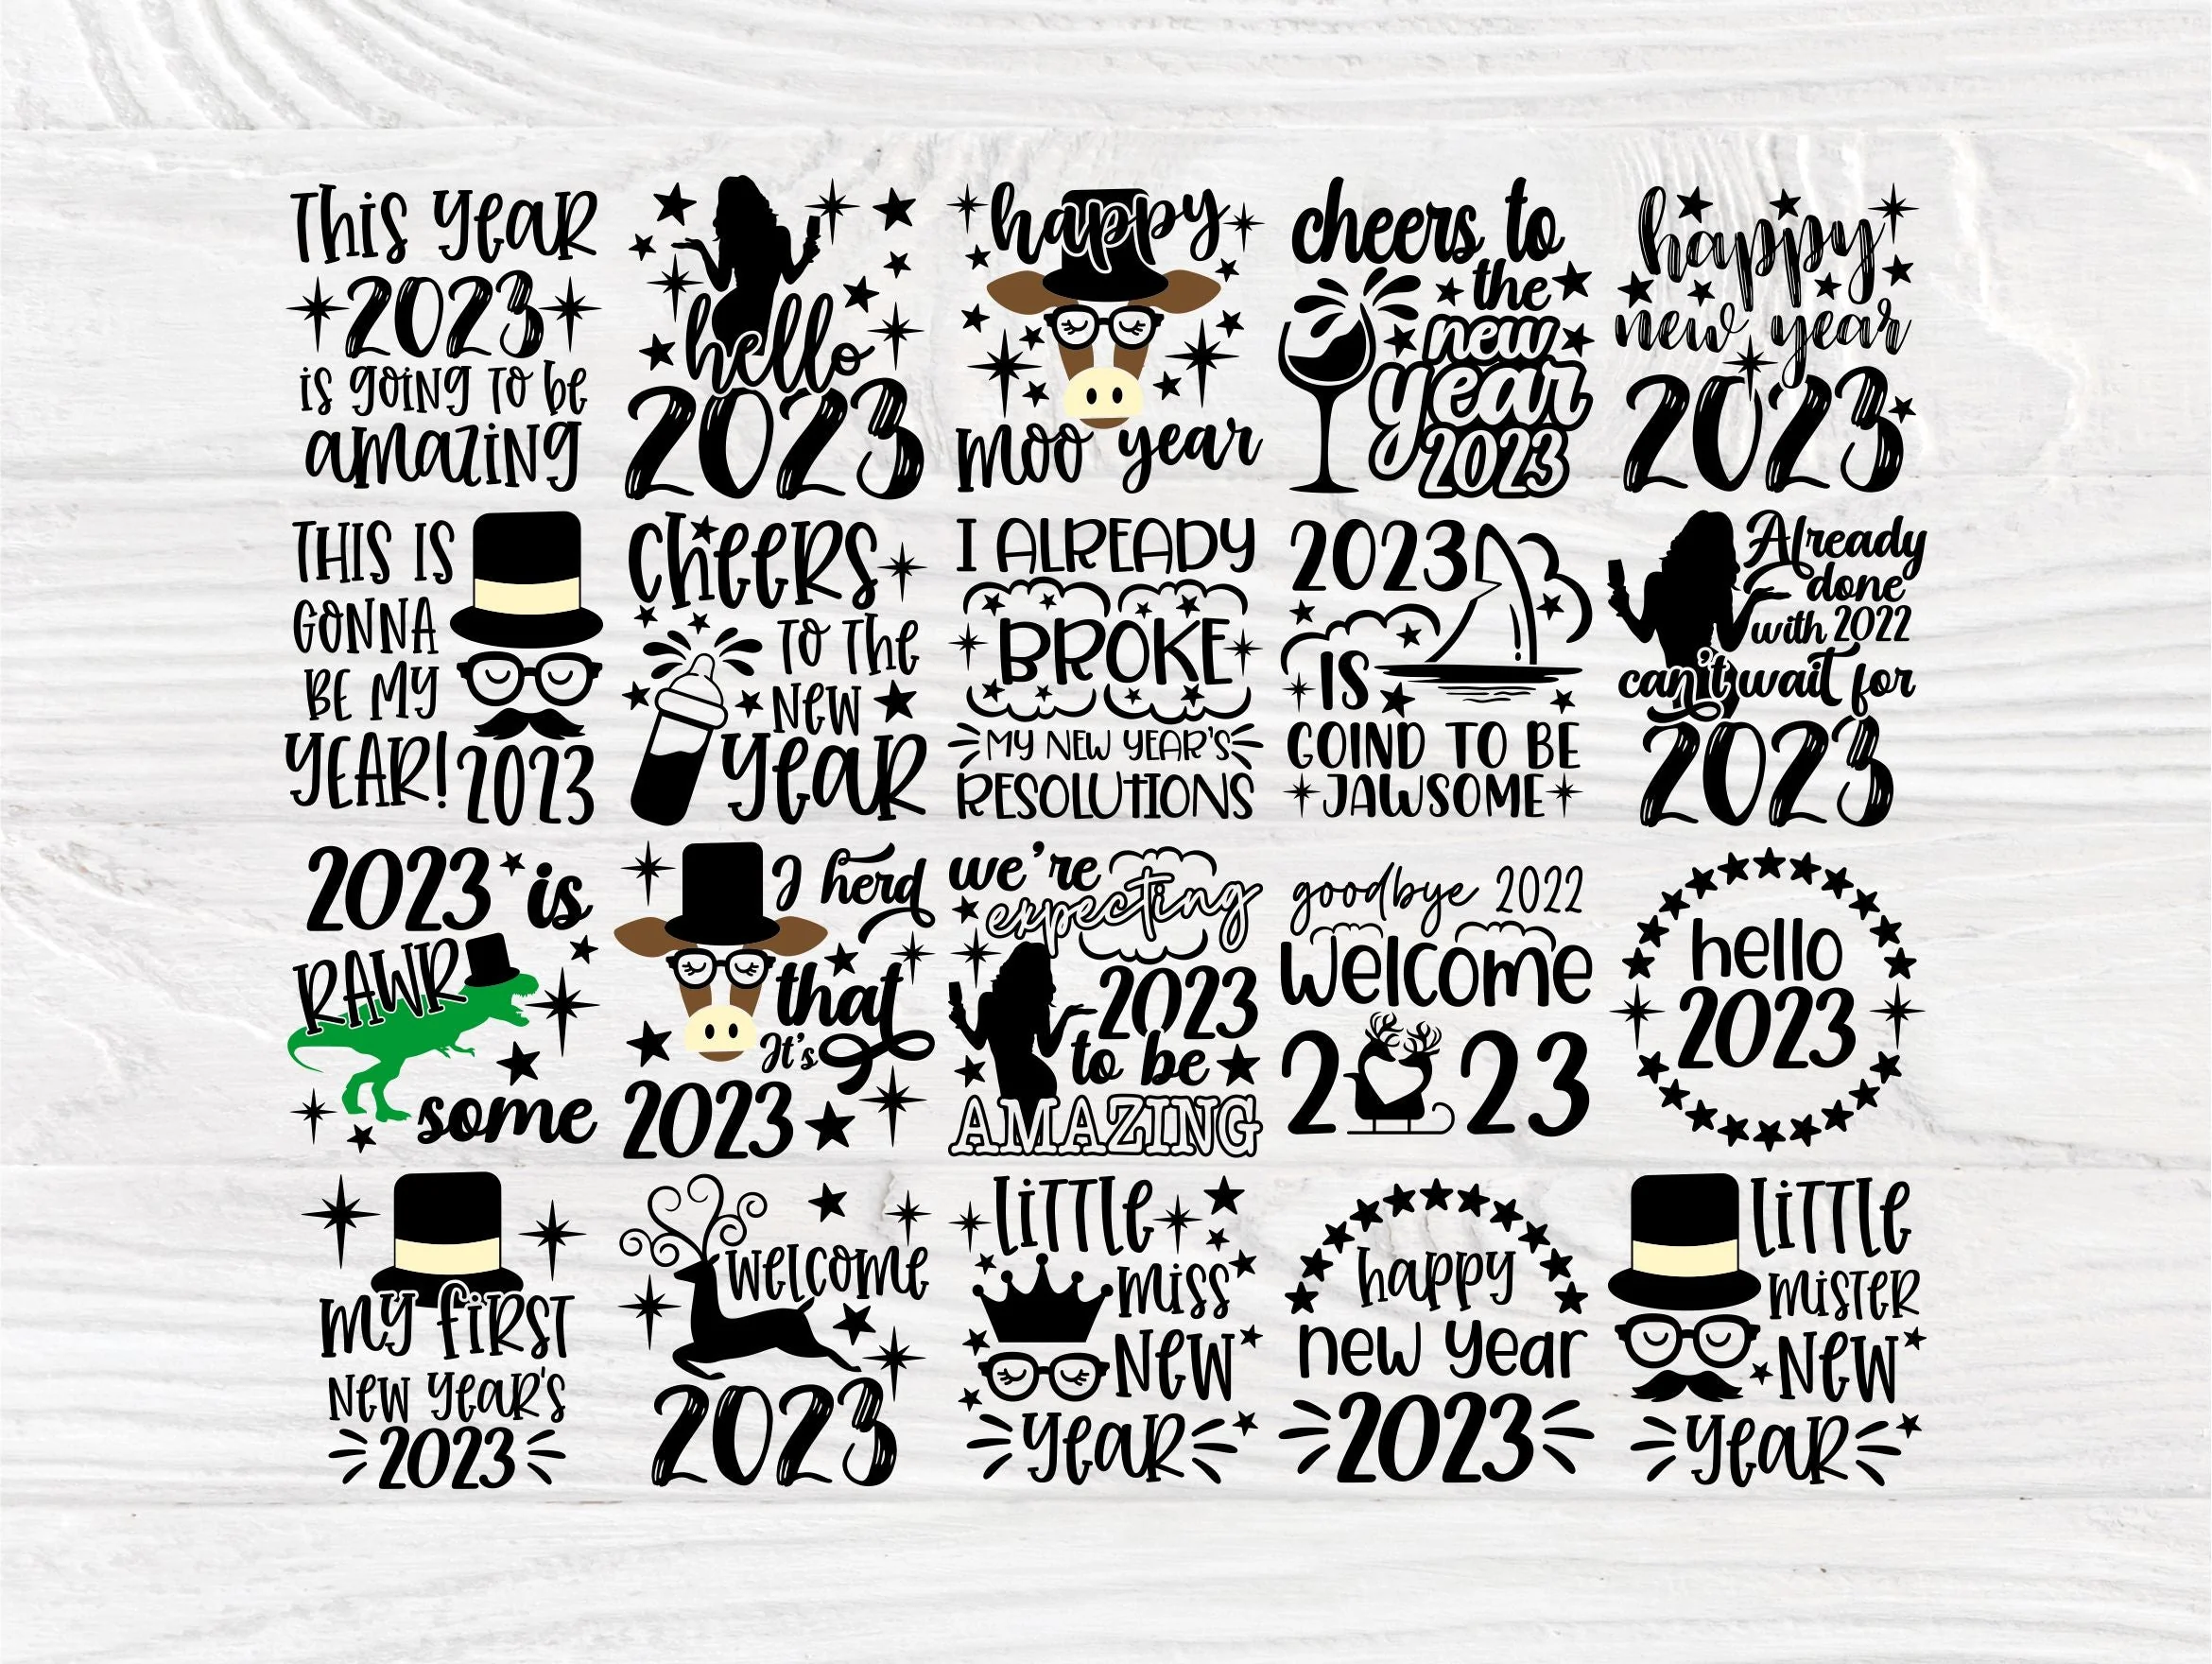 This year
2023
is going to be
amazing
hello
2023
happy
moo year
cheers to
the
new
year
2023
happy
new year
2023
THIS IS
GONNA
BE MY
YEAR!
2023
cheers
to the
new
year
I ALREADY
BROKE
MY NEW YEAR'S
RESOLUTIONS
2023
IS
GOIND TO BE
JAWSOME
Already
done
with 2022
can't wait for
2023
2023 is
RAWR
some
I herd
that
It's
2023
we're
expecting
2023
to be
AMAZING
goodbye 2022
welcome
2023
hello
2023
my first
new year's
2023
welcome
2023
little
miss
new
year
happy
new year
2023
little
mister
new
year